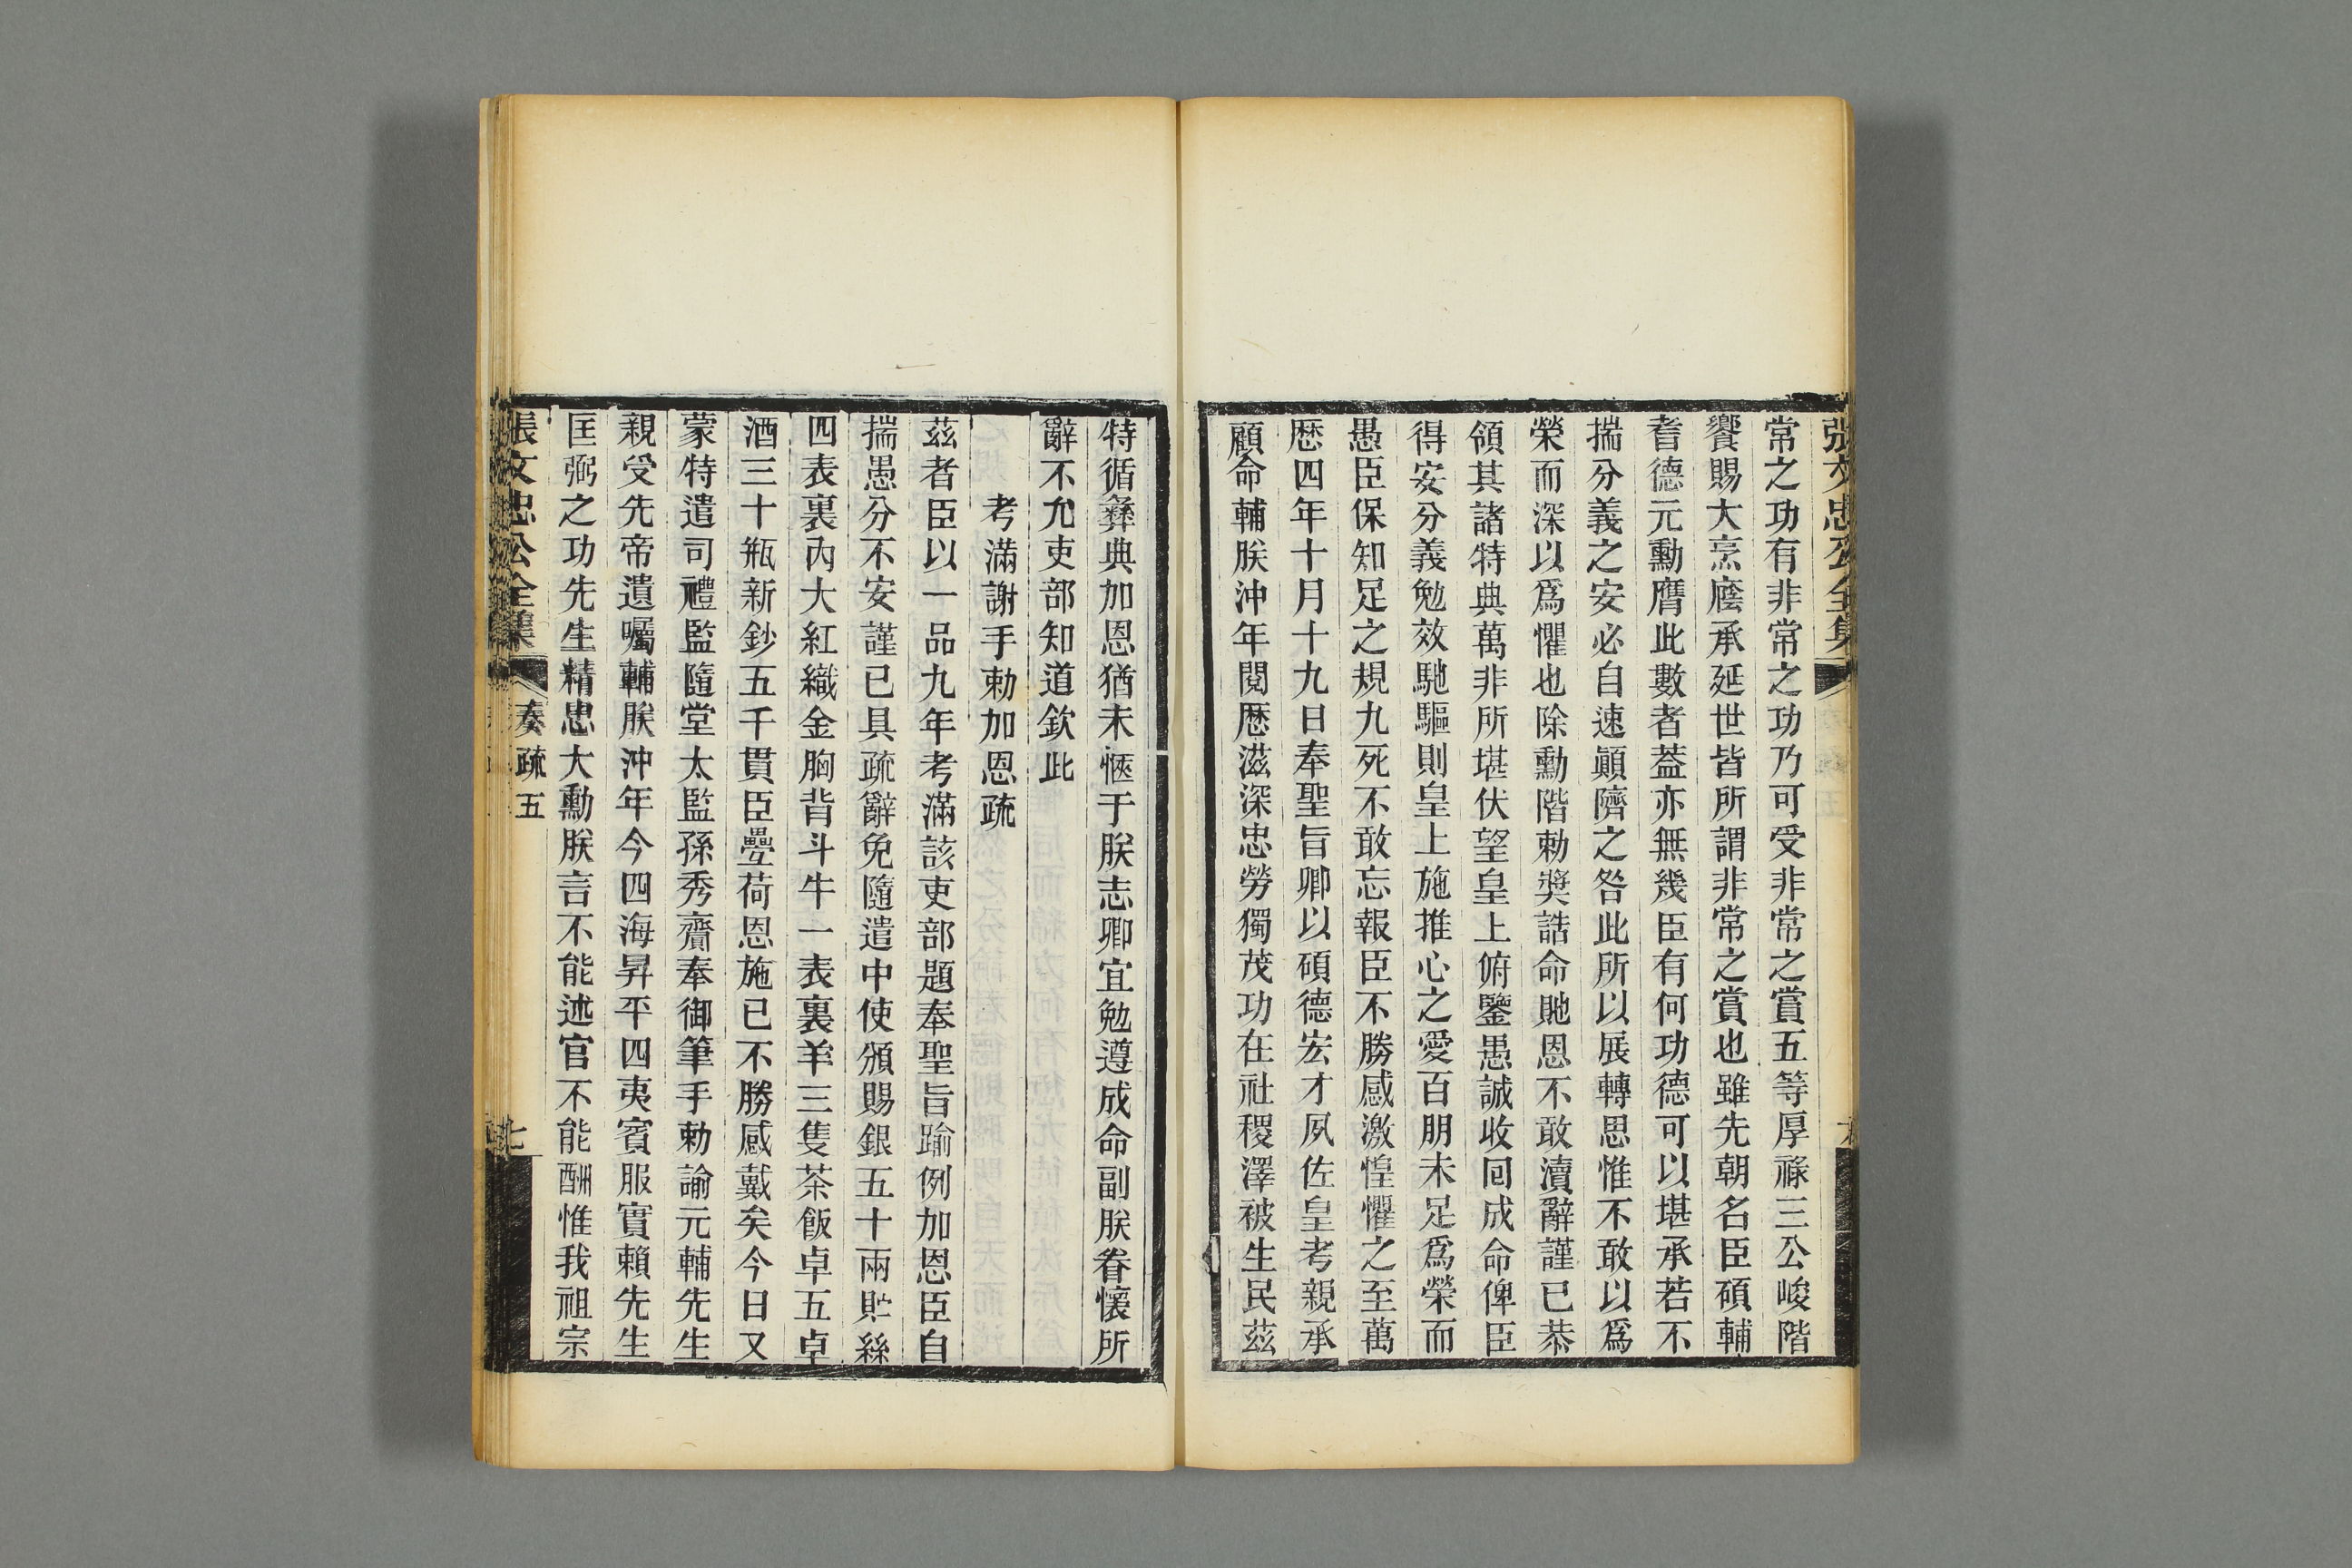 張文忠公全集
常之功有非常之功乃可受非常之賞五等厚祿三公峻階
饗賜大烹廕承延世皆所謂非常之賞也雖先朝名臣碩輔
耆德元勳膺此數者葢亦無幾臣有何功德可以堪承若不
揣分義之安必自速顚隮之咎此所以展轉思惟不敢以爲
榮而深以爲懼也除勳階勅奬誥命貤恩不敢瀆辭謹已恭
領其諸特典萬非所堪伏望皇上俯鑒愚誠收囘成命俾臣
得安分義勉效馳驅則皇上施推心之愛百朋未足爲榮而
愚臣保知足之規九死不敢忘報臣不勝感激惶懼之至萬
歷四年十月十九日奉聖旨卿以碩德宏才夙佐皇考親承
顧命輔朕沖年閱歷滋深忠勞獨茂功在社稷澤被生民茲
特循彝典加恩猶未愜于朕志卿宜勉遵成命副朕眷懷所
辭不允吏部知道欽此
考滿謝手勅加恩疏
茲者臣以一品九年考滿該吏部題奉聖旨踰例加恩臣自
揣愚分不安謹已具疏辭免隨遣中使頒賜銀五十兩貯絲
四表裏內大紅織金胸背斗牛一表裏羊三隻茶飯卓五卓
酒三十瓶新鈔五千貫臣疊荷恩施已不勝感戴矣今日又
蒙特遣司禮監隨堂太監孫秀齎奉御筆手勅諭元輔先生
親受先帝遺囑輔朕沖年今四海昇平四夷賓服實賴先生
匡弼之功先生精忠大勳朕言不能述官不能酬惟我祖宗
張文忠公全集 奏疏五 七